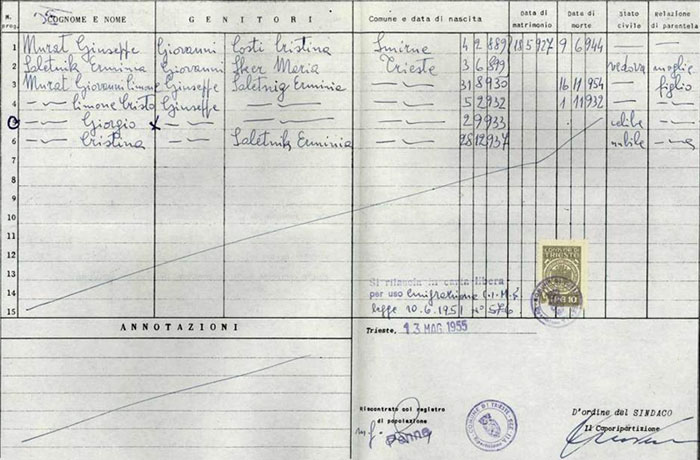 N. prog. COGNOME E NOME GENITORI Comune e data di nascita Data di matrimonio Data di morte Stato civile Relazione di parentela
1 Murat Giuseppe Giovanni Costi Cristina Smirne 4 2 889 18 5 927 9 6 944 — —
2 Saletnik Ermina Giovanni Sker Maria Trieste 3 6 899 vedova moglie
3 Murat Giovanni Simone Giuseppe Saletnig Erminia —〃— 31 8 930 16 11 954 — figlio
4 —〃— Simone Cristo Giuseppe —〃— —〃— 5 2 932 1 11 932 — —〃—
—〃— Giorgio x —〃— —〃— —〃— 2 9 933 celibe —〃—
6 —〃— Cristina —〃— Saletnik Erminia —〃— 28 12 937 nubile —〃—
7
8
9
10
11
12
13
14
15
COMUNE DI TRIESTE
Si rilascia in carta libera
per uso emigrazione C.I.M.E.
legge 10.6.1951 n° 576
ANNOTAZIONI
Trieste, 13 MAG 1955
Riscontrato col registro
di popolazione
D'ordine del SINDACO
Il Caporipartizione